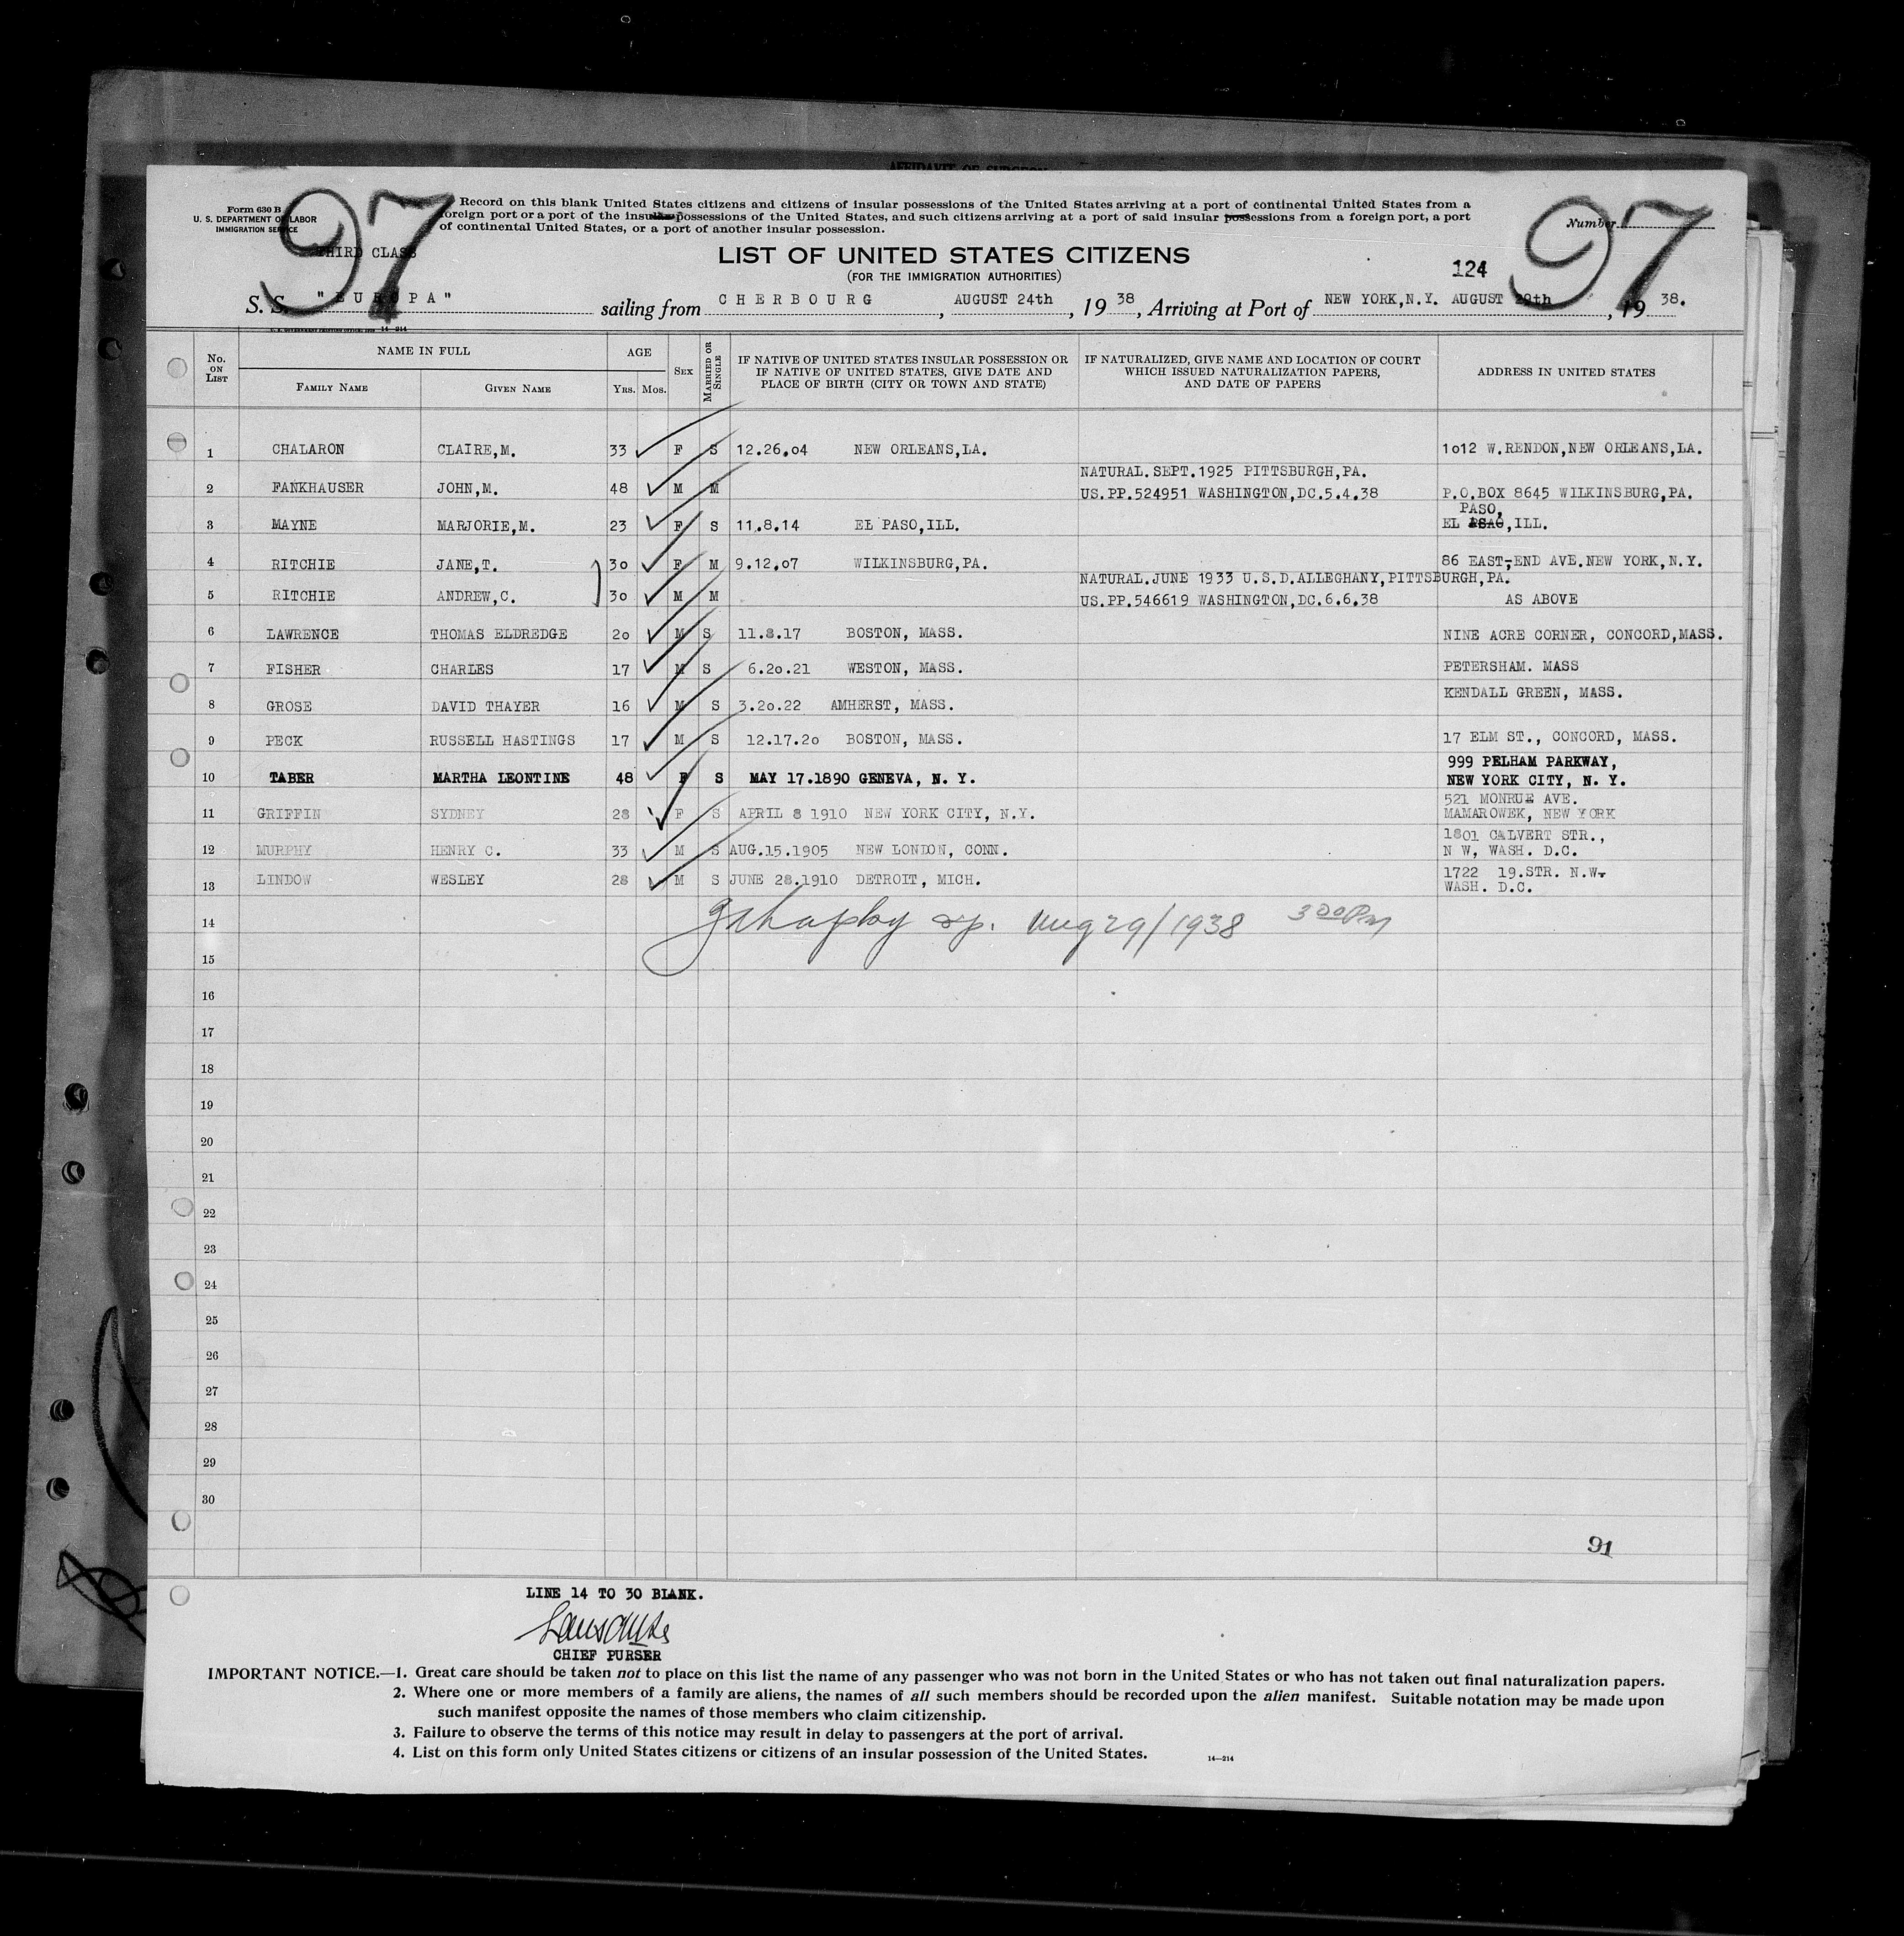 AFFIDAVIT OF SURGEON
97
97
Form 630 B
U. S. DEPARTMENT OF LABOR
IMMIGRATION SERVICE
Record on this blank United States citizens and citizens of insular possessions of the United States arriving at a port of continental United States from a
foreign port or a port of the insular possessions of the United States, and such citizens arriving at a port of said insular possessions from a foreign port, a port
of continental United States, or a port of another insular possession.
Number
THIRD CLASS
LIST OF UNITED STATES CITIZENS
(FOR THE IMMIGRATION AUTHORITIES)
124
S. S. "EUROPA" sailing from CHERBOURG, AUGUST 24th, 1938, Arriving at Port of NEW YORK,N.Y. AUGUST 29th, 1938.
14-214
No. ON LIST
NAME IN FULL
FAMILY NAME
GIVEN NAME
AGE
YRS. MOS.
SEX
MARRIED OR SINGLE
IF NATIVE OF UNITED STATES INSULAR POSSESSION OR
IF NATIVE OF UNITED STATES, GIVE DATE AND
PLACE OF BIRTH (CITY OR TOWN AND STATE)
IF NATURALIZED, GIVE NAME AND LOCATION OF COURT
WHICH ISSUED NATURALIZATION PAPERS,
AND DATE OF PAPERS
ADDRESS IN UNITED STATES
1 CHALARON CLAIRE,M. 33 F S 12.26.04 NEW ORLEANS,LA. 1o12 W.RENDON,NEW ORLEANS,LA.
NATURAL.SEPT.1925 PITTSBURGH,PA.
2 FANKHAUSER JOHN,M. 48 M M US.PP.524951 WASHINGTON,DC.5.4.38 P.O.BOX 8645 WILKINSBURG,PA.
PASO,
3 MAYNE MARJORIE,M. 23 F S 11.8.14 EL PASO,ILL. EL PSAO,ILL.
4 RITCHIE JANE,T. 30 F M 9.12.07 WILKINSBURG,PA. 86 EAST-END AVE.NEW YORK,N.Y.
NATURAL.JUNE 1933 U.S.D.ALLEGHANY,PITTSBURGH,PA.
5 RITCHIE ANDREW,C. 30 M M US.PP.546619 WASHINGTON,DC.6.6.38 AS ABOVE
6 LAWRENCE THOMAS ELDREDGE 20 M S 11.8.17 BOSTON, MASS. NINE ACRE CORNER, CONCORD,MASS.
7 FISHER CHARLES 17 M S 6.20.21 WESTON, MASS. PETERSHAM. MASS
8 GROSE DAVID THAYER 16 M S 3.20.22 AMHERST, MASS. KENDALL GREEN, MASS.
9 PECK RUSSELL HASTINGS 17 M S 12.17.20 BOSTON, MASS. 17 ELM ST., CONCORD, MASS.
999 PELHAM PARKWAY,
10 TABER MARTHA LEONTINE 48 F S MAY 17.1890 GENEVA, N. Y. NEW YORK CITY, N. Y.
521 MONRUE AVE.
11 GRIFFIN SYDNEY 28 F S APRIL 8 1910 NEW YORK CITY, N.Y. MAMAROWEK, NEW YORK
1801 CALVERT STR.,
12 MURPHY HENRY C. 33 M S AUG.15.1905 NEW LONDON, CONN. N W, WASH. D.C.
1722 19.STR. N.W.
13 LINDOW WESLEY 28 M S JUNE 28.1910 DETROIT, MICH. WASH. D.C.
14 Aug 29/1938 3 00 Pm
15
16
17
18
19
20
21
22
23
24
25
26
27
28
29
30
91
LINE 14 TO 30 BLANK.
CHIEF PURSER
IMPORTANT NOTICE.—1. Great care should be taken not to place on this list the name of any passenger who was not born in the United States or who has not taken out final naturalization papers.
2. Where one or more members of a family are aliens, the names of all such members should be recorded upon the alien manifest. Suitable notation may be made upon
such manifest opposite the names of those members who claim citizenship.
3. Failure to observe the terms of this notice may result in delay to passengers at the port of arrival.
4. List on this form only United States citizens or citizens of an insular possession of the United States.
14—214